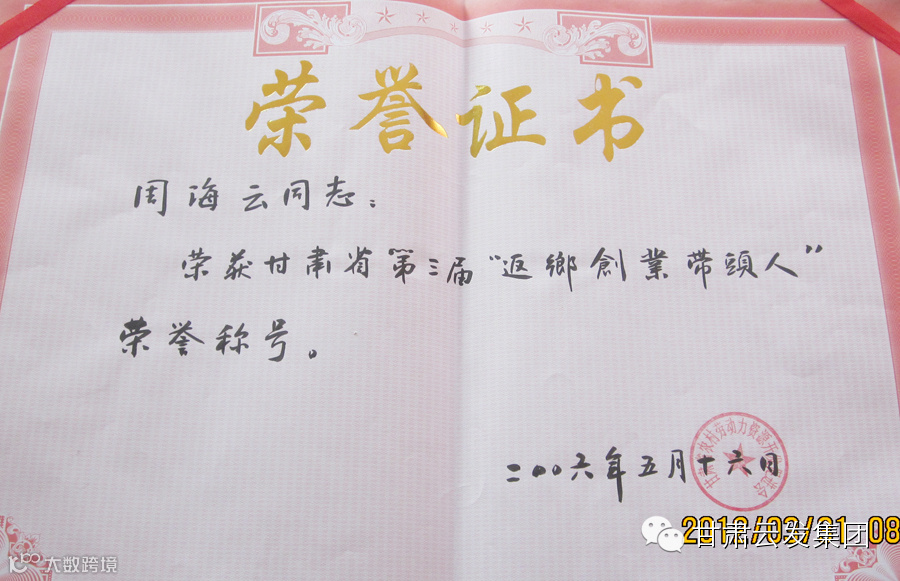 荣誉证书
周海云同志：
荣获甘肃省第三届“返鄉創業带頭人”
荣誉称号。
二〇〇六年五月十六日
农村劳动力资源开
甘肃云发集团
大数跨境